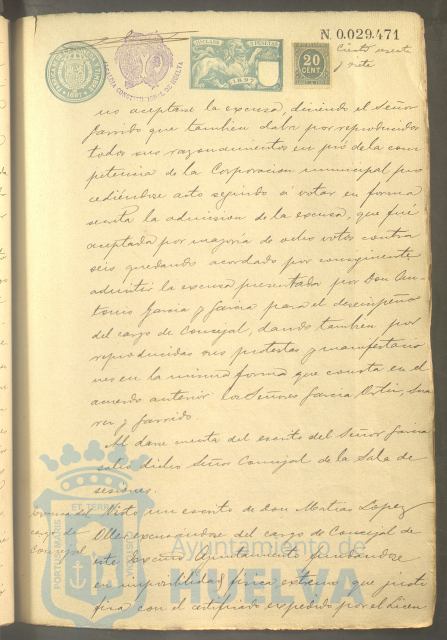 N. 0.029.471
Ciento sesenta
y siete
1897
20
CENT.
no aceptase la excusa, diciendo el Señor
Garrido que tambien daba por reproducidos
todos sus razonamientos en pró de la com-
petencia de la Corporacion municipal pro
cediéndose acto seguido á votar en forma
secreta la admision de la excusa, que fué
aceptada por mayoría de ocho votos contra
seis quedando acordado por consiguiente
admitir la excusa presentada por Don An-
tonio Garcia y Garcia para el desempeño
del cargo de Concejal, dando tambien por
reproducidas sus protestas y manifestacio
nes en la misma forma que consta en el
acuerdo anterior los Señores Garcia Ortiz, Sua
rez y Garrido.
Al darse cuenta del escrito del Señor Garcia
salió dicho Señor Concejal de la Sala de
sesiones.
cargo de
Concejal
Visto un escrito de don Matias Lopez
excusandose del cargo de Concejal de
este Excmo Ayuntamiento fundandose
en imposibilidad física extremo que justi
fica con el certificado expedido por el Licen
Ayuntamiento de
HUELVA
PORTUS MARIS ET TERRAE